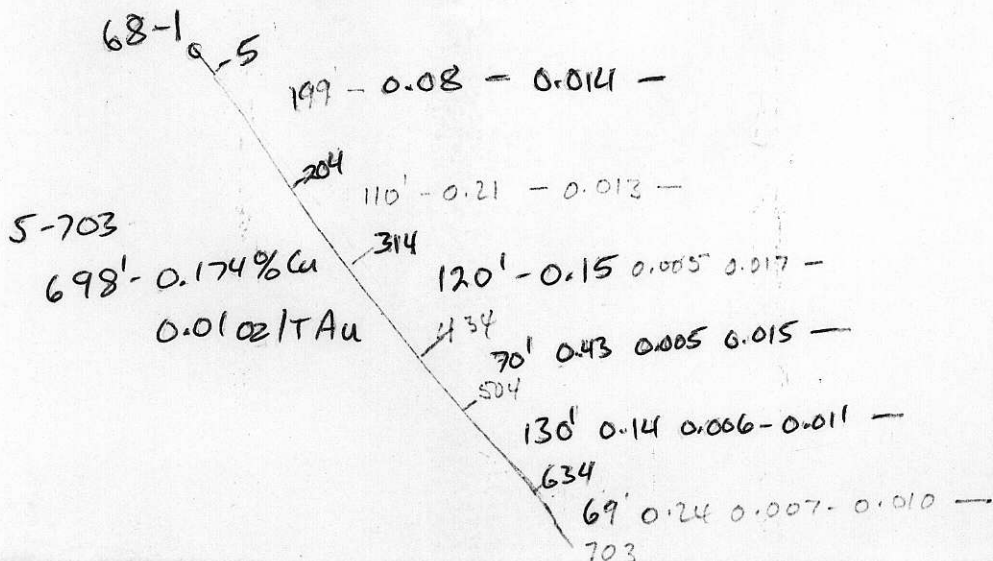 68-1
5
199' - 0.08 - 0.014 -
204
110' - 0.21 - 0.013 -
5-703
314
698' - 0.174% Cu
120' - 0.15 0.005 0.017 -
0.01 oz/T Au
434
70' 0.43 0.005 0.015 -
504
130' 0.14 0.006 - 0.011 -
634
69' 0.24 0.007 - 0.010 -
703